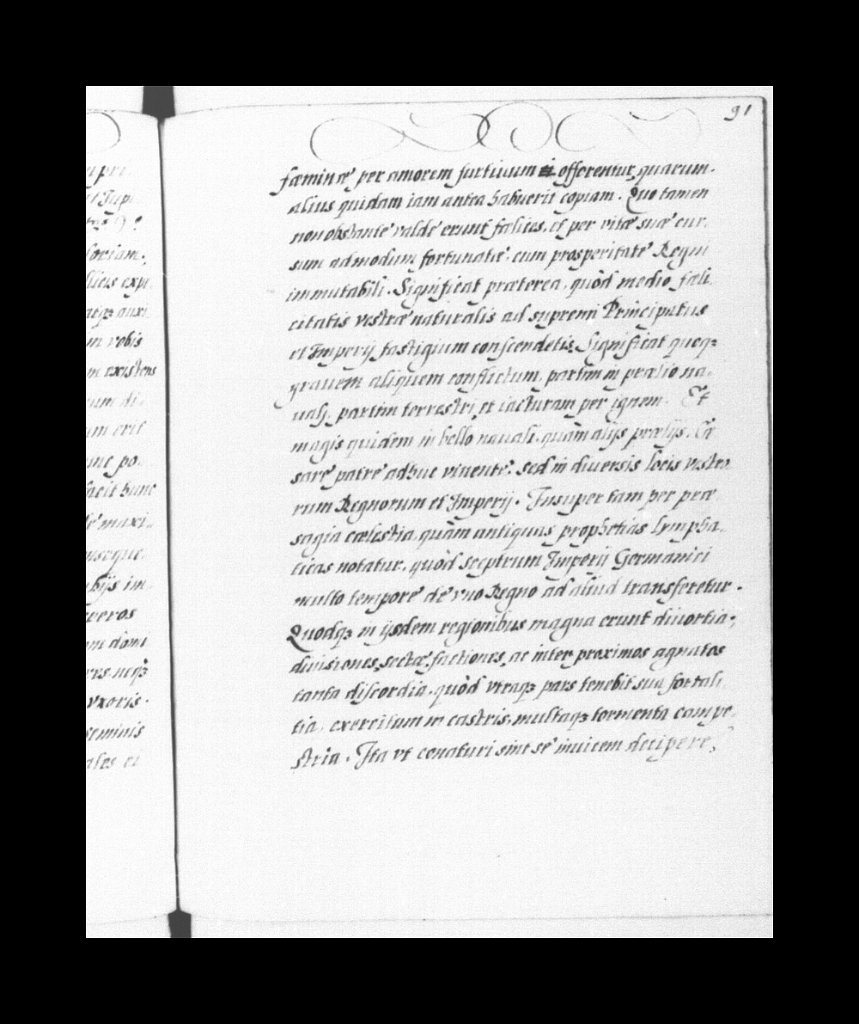 91
fæminæ per amorem furtiuum offerentur, quarum.
alius quidam iam antea habuerit copiam. Quo tamen
non obstante valdè erunt fælices, et per vitæ suæ cur,
sum admodum fortunatæ, cum prosperitate Regni
immutabili. Significat præterea, quòd medio fæli
citatis vestræ naturalis ad supremi Principatus
et Imperij fastigium conscendetis. Significat quoqȝ
grauem aliquem conflictum, partim in prælio na,
uali, partim terrestri, et iacturam per ignem. Et
magis quidem in bello nauali, quàm alijs prælijs. Cæ
sare patre adhuc viuente, sed in diuersis locis vestro
rum Regnorum et Imperij. Insuper tam per præ
sagia cælestia, quàm antiquas prophetias lympha,
ticas notatur, quòd sceptrum Imperii Germanici
multo tempore de vno Regno ad aliud transferetur.
Quodqȝ in ijsdem regionibus magna erunt diuortia,
diuisiones, sectæ, factiones, ac inter proximos agnatos
tanta discordia, quòd vtraqȝ pars tenebit sua fortali
tia, exercitum in castris, multaqȝ tormenta campe,
stria. Ita vt conaturi sint se inuicem decipere,
ad
vobis
existens
erit
po.
hunc
maxi,
im,
neqȝ
vxoris.
seminis